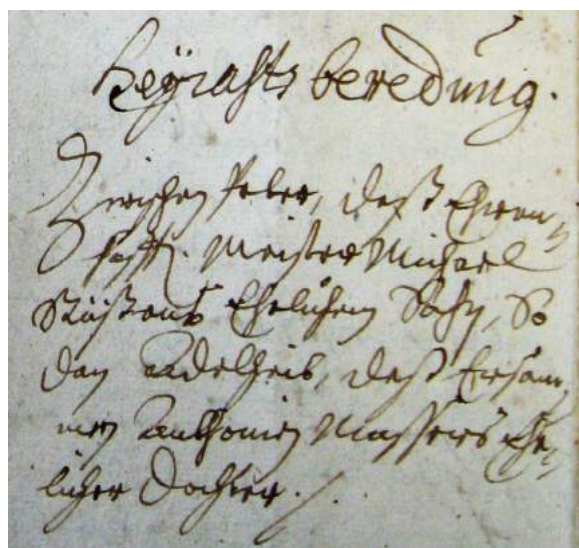 Heÿrahts beredung.
Zwischen Peter, deß Ehren=
hafft. Meister Michael
Ehelichem Sohn, So
dan Adelheid, deß Ersam
men Anthonien Massers Ehe=
licher Dochter ./.